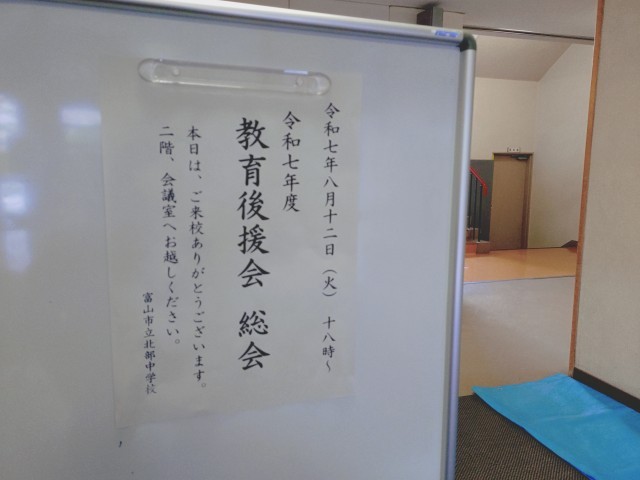 令和七年八月十二日（火）　十八時～
令和七年度
教育後援会　総会
本日は、ご来校ありがとうございます。
二階、会議室へお越しください。
富山市立北部中学校